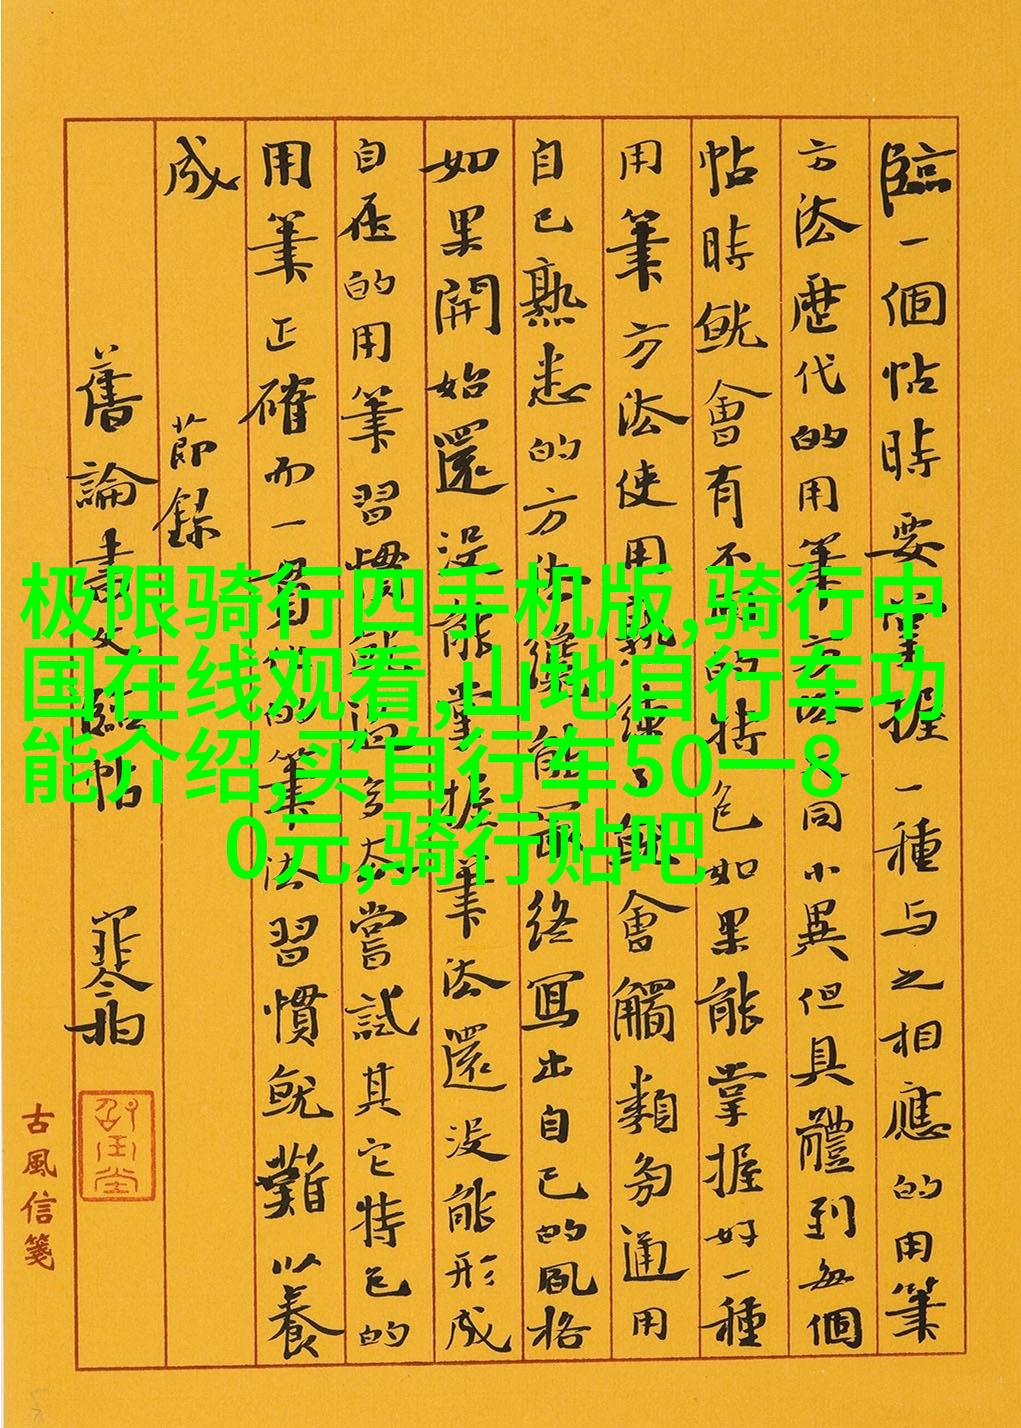 臨一個帖時要掌握一種与之相應的用筆
方法歷代的用筆方法大同小異但具體到每個
帖時就會有不同的特色如果能掌握好一種
用筆方法使用熟練了就會觸類旁通用
自己熟悉的方法 能 終寫出自己的風格
如果開始還沒能掌握筆法還沒能形成
自在的用筆習慣就過多去嘗試其它特色的
用筆正確而一貫 的筆法習慣就難以養
成 節錄
舊論書文臨帖
古風信箋
极限骑行四手机版,骑行中
国在线观看,山地自行车功
能介绍,买自行车50一8
0元,骑行贴吧